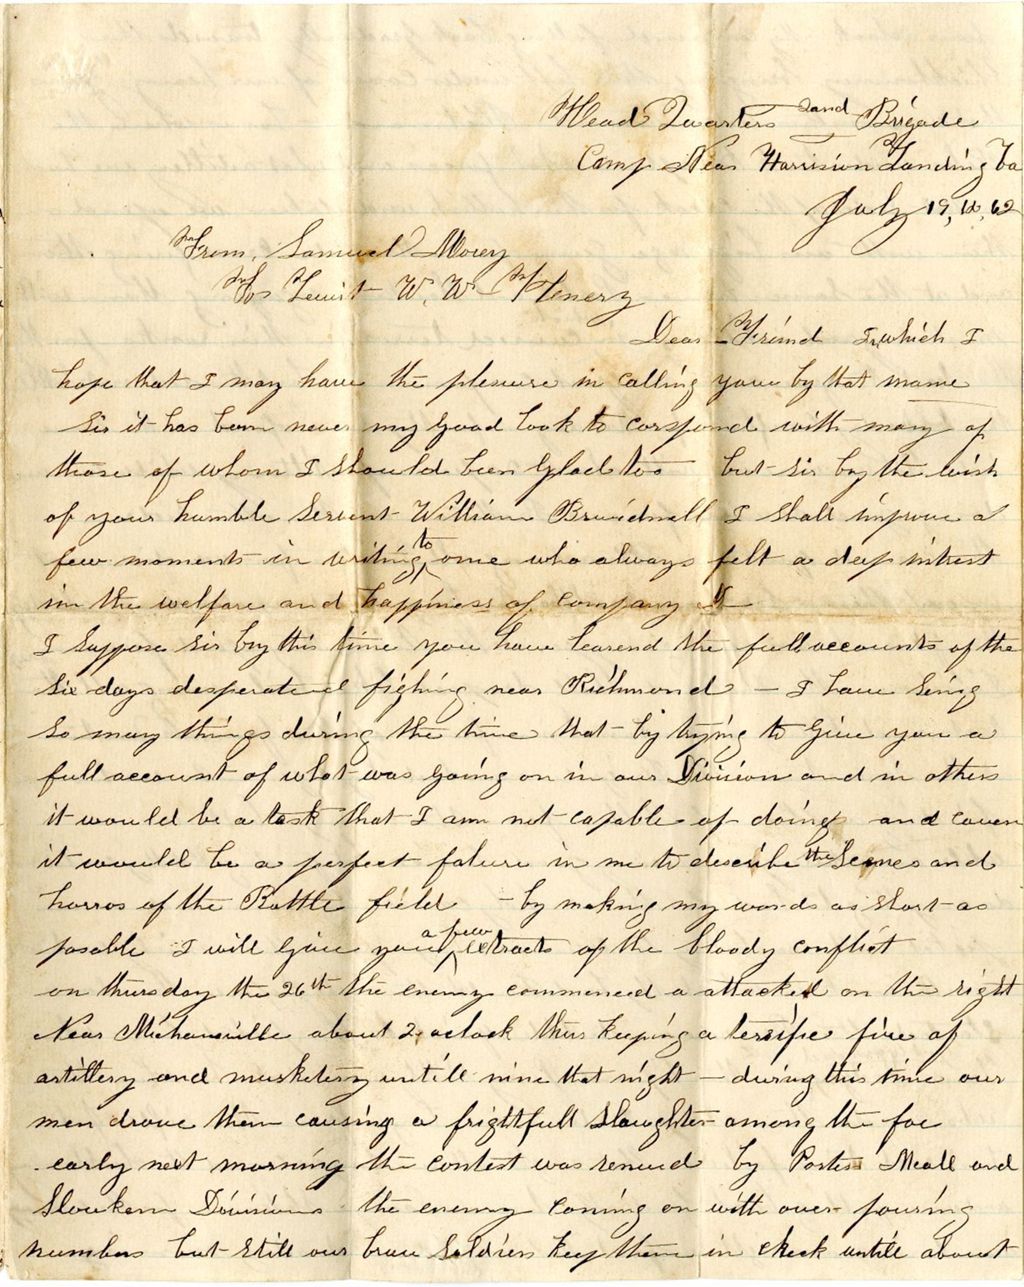 Head Quarters 2and Brigade
Camp Near Harrision Landing Va
July 19, 1862
From, Samuel Morey
To Leuit W. W. Henery
Dear Freind In which I
hope that I may have the plesure in calling you by that name
Sir it has been never my good look to corspond with many of
those of whom I should been Glad too but sir by the wish
of your humble Servent William Bruidnell I shall improve a
few moments in writing to one who always felt a deep intrest
in the welfare and happiness of company
I Suppose sir by this time you have learend the full accounts of the
Six days desperated fighing near Richmond - I have sing
So many things during the time that by trying to Give you a
full account of what was going on in our Division and in others
it would be a task that I am not capable of doing and
it would be a perfect falure in me to describe the Scenes and
horros of the Battle field - by making my words as short as
posable I will Give you a few extracts of the bloody conflict
on thursday the 26th the enemy commenced a attacked on the right
Near Michansville about 2 oclock thus keeping a terrific fire of
artillery and musketery untill nine that night - during this time our
men drove them causing a frightfull Slaughter among the foe
early next morning the contest was renued by Porter Mcall and
Slowkem Divisions the enemy coming on with over pouring
numbers but still our brave Soldiers keep them in check untill about